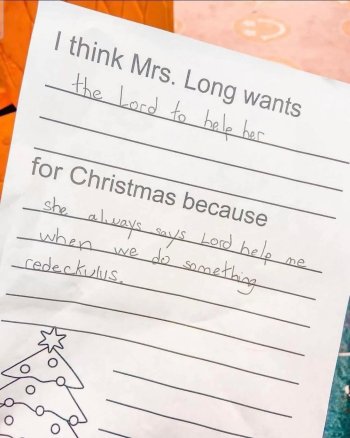 I think Mrs. Long wants
the Lord to help her
for Christmas because
she always says Lord help me
when we do something
redeckulus.